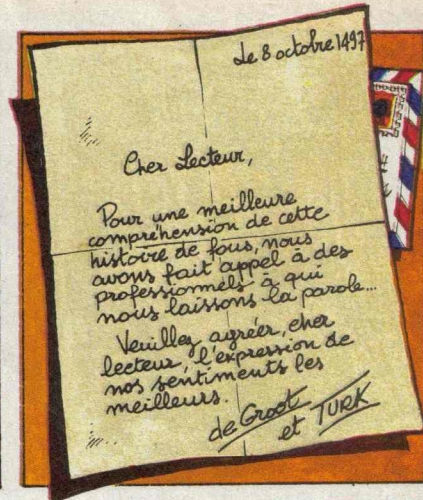 Le 8 octobre 1497
Cher Lecteur,
Pour une meilleure
compréhension de cette
histoire de fous, nous
avons fait appel à des
professionnels à qui
nous laissons la parole...
Veuillez agréer, cher
lecteur, l'expression de
nos sentiments les
meilleurs.
de Groot
et TURK